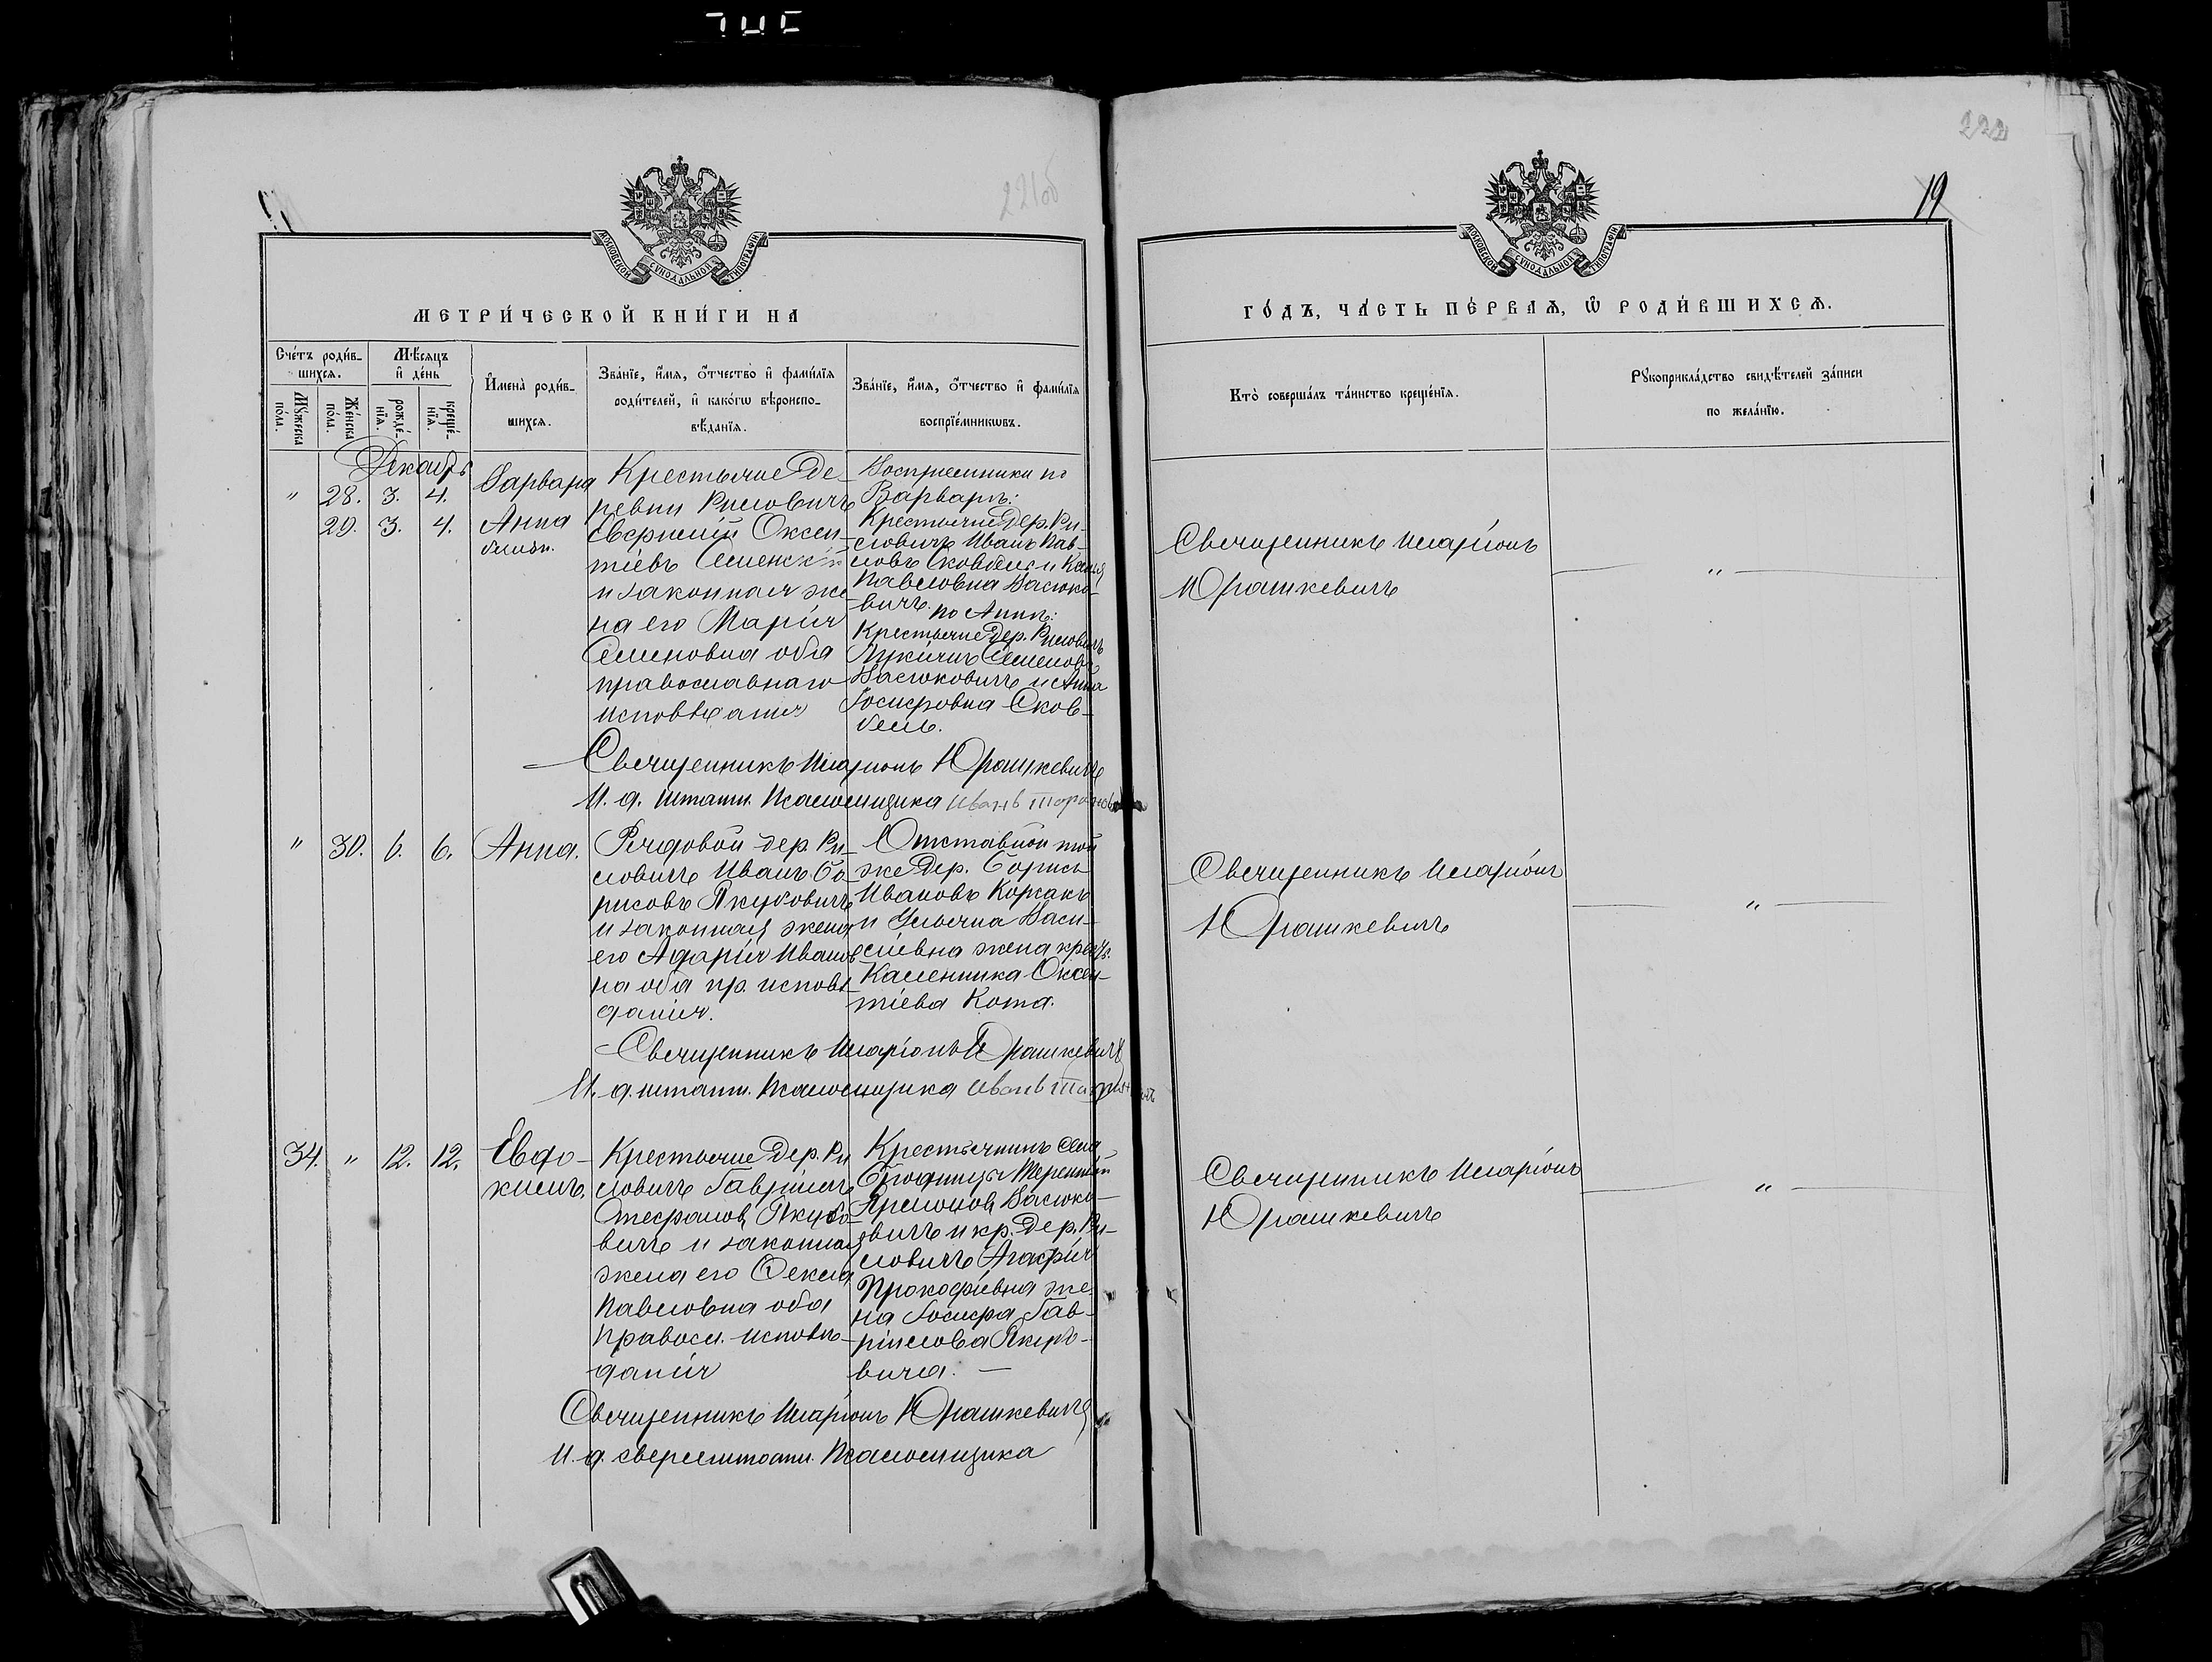 222
221об
19
МОСКОВСКОЙ СѴНОДАЛЬНОЙ ТИПОГРАФІИ
МОСКОВСКОЙ СѴНОДАЛЬНОЙ ТИПОГРАФІИ
МЕТРИ́ЧЕСКОЙ КНИ́ГИ НА
ГО́ДЪ, ЧА́СТЬ ПЕ́РВАѦ, Ѡ҆ РОДИ́ВШИХСѦ.
Сче́тъ роди́в-
шихсѧ.
Мꙋ́жеска по́ла.
Же́нска по́ла.
Мѣ́сѧцъ
и҆ де́нь
рожде́-
нїѧ.
креще́-
нїѧ.
И҆мена̀ роди́в-
шихсѧ.
Зва́нїе, и҆́мѧ, ѻ҆́тчество и҆ фами́лїѧ
роди́телей, и҆ како́гѡ вѣроиспо-
вѣ́данїѧ.
Зва́нїе, и҆́мѧ, ѻ҆́тчество и҆ фами́лїѧ
воспрїе́мникѡвъ.
Кто̀ соверша́лъ та́инство креще́нїѧ.
Рꙋкоприкла́дство свидѣ́телей за́писи
по жела́нїю.
Декабрь
" 28. 3. 4.
29. 3. 4.
Варвара
Анна
близн.
Крестьяне де-
ревни Рисовичъ
Евгеній Оксен-
тіевъ
и законная же-
на его Марія
Семеновна оба
православнаго
исповѣданія
Воспріемники по
Варварѣ:
Крестьяне дер. Ри-
совичъ Иванъ Пав-
ловъ
Павловна Васюко-
вичъ. по Аннѣ:
Крестьяне дер. Рисовичъ
Семеновъ
Васюковичъ и Анна
Іосифовна Сков-
бель.
Священникъ Иларіонъ
Юрашкевичъ
"
Священникъ Иларіонъ Юрашкевичъ
И. д. штатн. Псаломщика Иванъ
" 30. 6. 6. Анна.
Рядовой дер. Ри-
совичъ Иванъ Бо-
рисовъ Якубовичъ
и законная жена
его Агафія Иванов-
на оба пр. исповѣ-
данія.
Отставной той
же дер. Борисъ
Ивановъ Коржакъ
и Ульяна Васи-
ліевна жена крест.
Каленника Оксен-
тіева Кота.
Священникъ Иларіонъ
Юрашкевичъ
"
Священникъ Иларіонъ Юрашкевичъ
И. д. штатн. Псаломщика Иванъ
34. " 12. 12. Евдо-
кимъ.
Крестьяне дер. Ри-
совичъ Гавріилъ
Стефановъ Якубо-
вичъ и законная
жена его Ѳекла
Павловна оба
правосл. исповѣ-
данія
Крестьянинъ села
Терентій
Васюко-
вичъ и кр. дер. Ри-
совичъ Агафія
Прокофіевна же-
на Іосифа Гав-
ріилова Якубо-
вича. —
Священникъ Иларіонъ
Юрашкевичъ
"
Священникъ Иларіонъ Юрашкевичъ
И. д. сверхштатн. Псаломщика